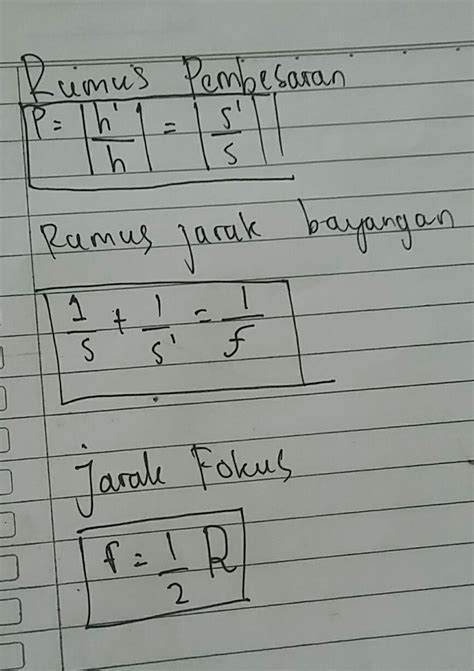 Rumus Pembesaran
P = |h'/h| = |s'/s|
Rumus jarak bayangan
1/s + 1/s' = 1/f
jarak Fokus
f = 1/2 R